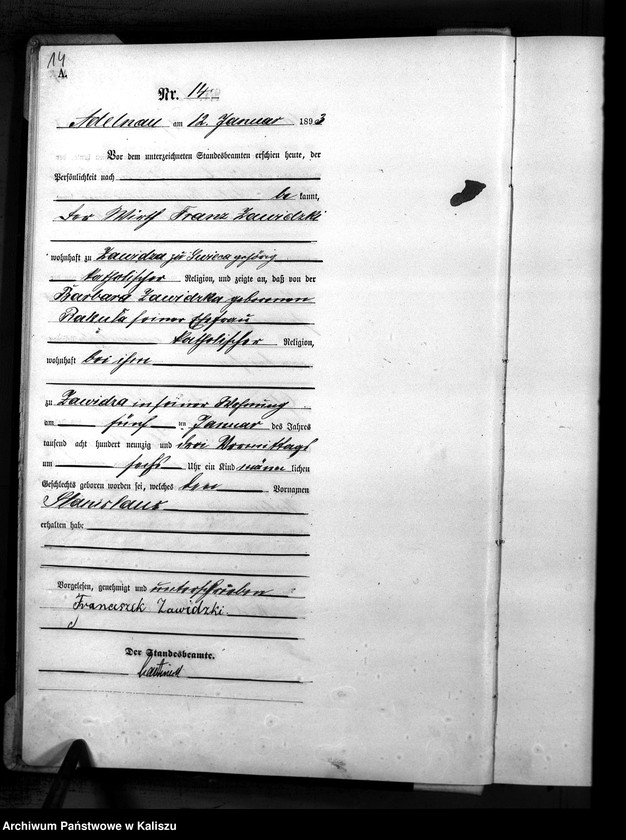 14
A.
Nr. 14
Adelnau am 12. Januar 1893
Vor dem unterzeichneten Standesbeamten erschien heute, der
Persönlichkeit nach
be kannt,
der Wirth Franz Zawidzki
wohnhaft zu Zawidza zu gehörig
katholischer Religion, und zeigte an, daß von der
Barbara Zawidzka geborenen
Rakuła seiner Ehefrau
katholischer Religion,
wohnhaft bei ihm
zu Zawidza in seiner Wohnung
am fünf ten Januar des Jahres
tausend acht hundert neunzig und drei Vormittags
um sechs Uhr ein Kind männ lichen
Geschlechts geboren worden sei, welches den Vornamen
Stanislaus
erhalten habe
Vorgelesen, genehmigt und unterschrieben
Franciszek Zawidzki
Der Standesbeamte.
Archiwum Państwowe w Kaliszu